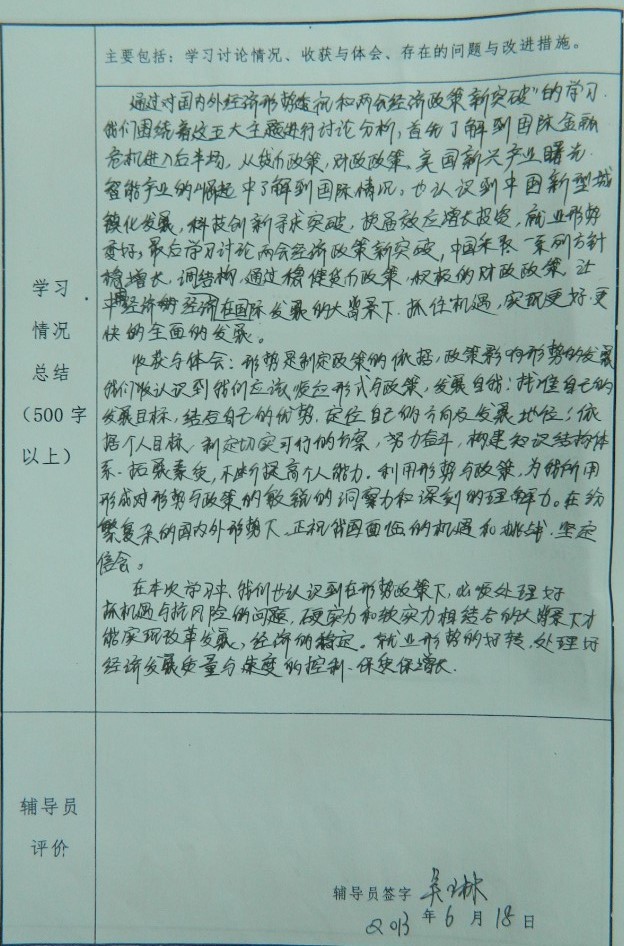 主要包括：学习讨论情况、收获与体会、存在的问题与改进措施。
通过对国内外经济形势透视和两会经济政策新突破”的学习.
我们围绕着这五大主题进行讨论分析，首先了解到国际金融
危机进入后半场，从货币政策，财政政策，美国新兴产业曙光.
智能产业的崛起中了解到国际情况，也认识到中国新型城
镇化发展，科技创新寻求突破，换届效应增大投资，就业形势
更好，最后学习讨论两会经济政策新突破，中国采取一系列方针
稳增长，调结构，通过稳健货币政策，积极的财政政策，让
中国经济在国际发展的大背景下，抓住机遇，实现更好.更
快的全面的发展。
收获与体会：形势是制定政策的依据，政策影响形势的发展
我们认识到我们应该顺应形式与政策，发展自我：找准自己的
发展目标，结合自己的优势，定位自己的方向及发展地位；依
据个人目标，制定切实可行的方案，努力奋斗，构建知识结构体
系，拓展素质，不断提高个人能力。利用形势与政策，为我所用
形成对形势与政策的敏锐的洞察力和深刻的理解力。在纷
繁复杂的国内外形势下，正视我国面临的机遇和挑战.坚定
信念。
在本次学习中，我们也认识到在形势政策下，必须处理好
抓机遇与抗风险的问题，硬实力和软实力相结合的大背景下才
能实现改革发展，经济的稳定。就业形势的好转，处理好
经济发展质量与速度的控制、保质保增长.
学习
情况
总结
（500字
以上）
辅导员
评价
辅导员签字 吴琳
2013年6月18日